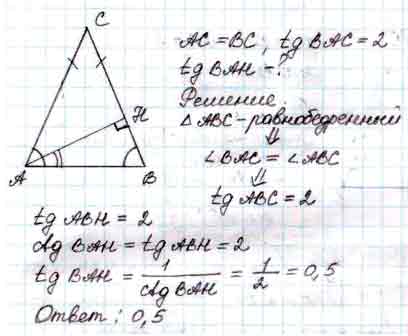 C
AC = BC, tg BAC = 2
tg BAH - ?
Решение.
△ABC - равнобедренный
⇓
∠BAC = ∠ABC
⇓
tg ABC = 2
H
A
B
tg ABH = 2
ctg BAH = tg ABH = 2
tg BAH = 1/ctg BAH = 1/2 = 0,5
Ответ: 0,5